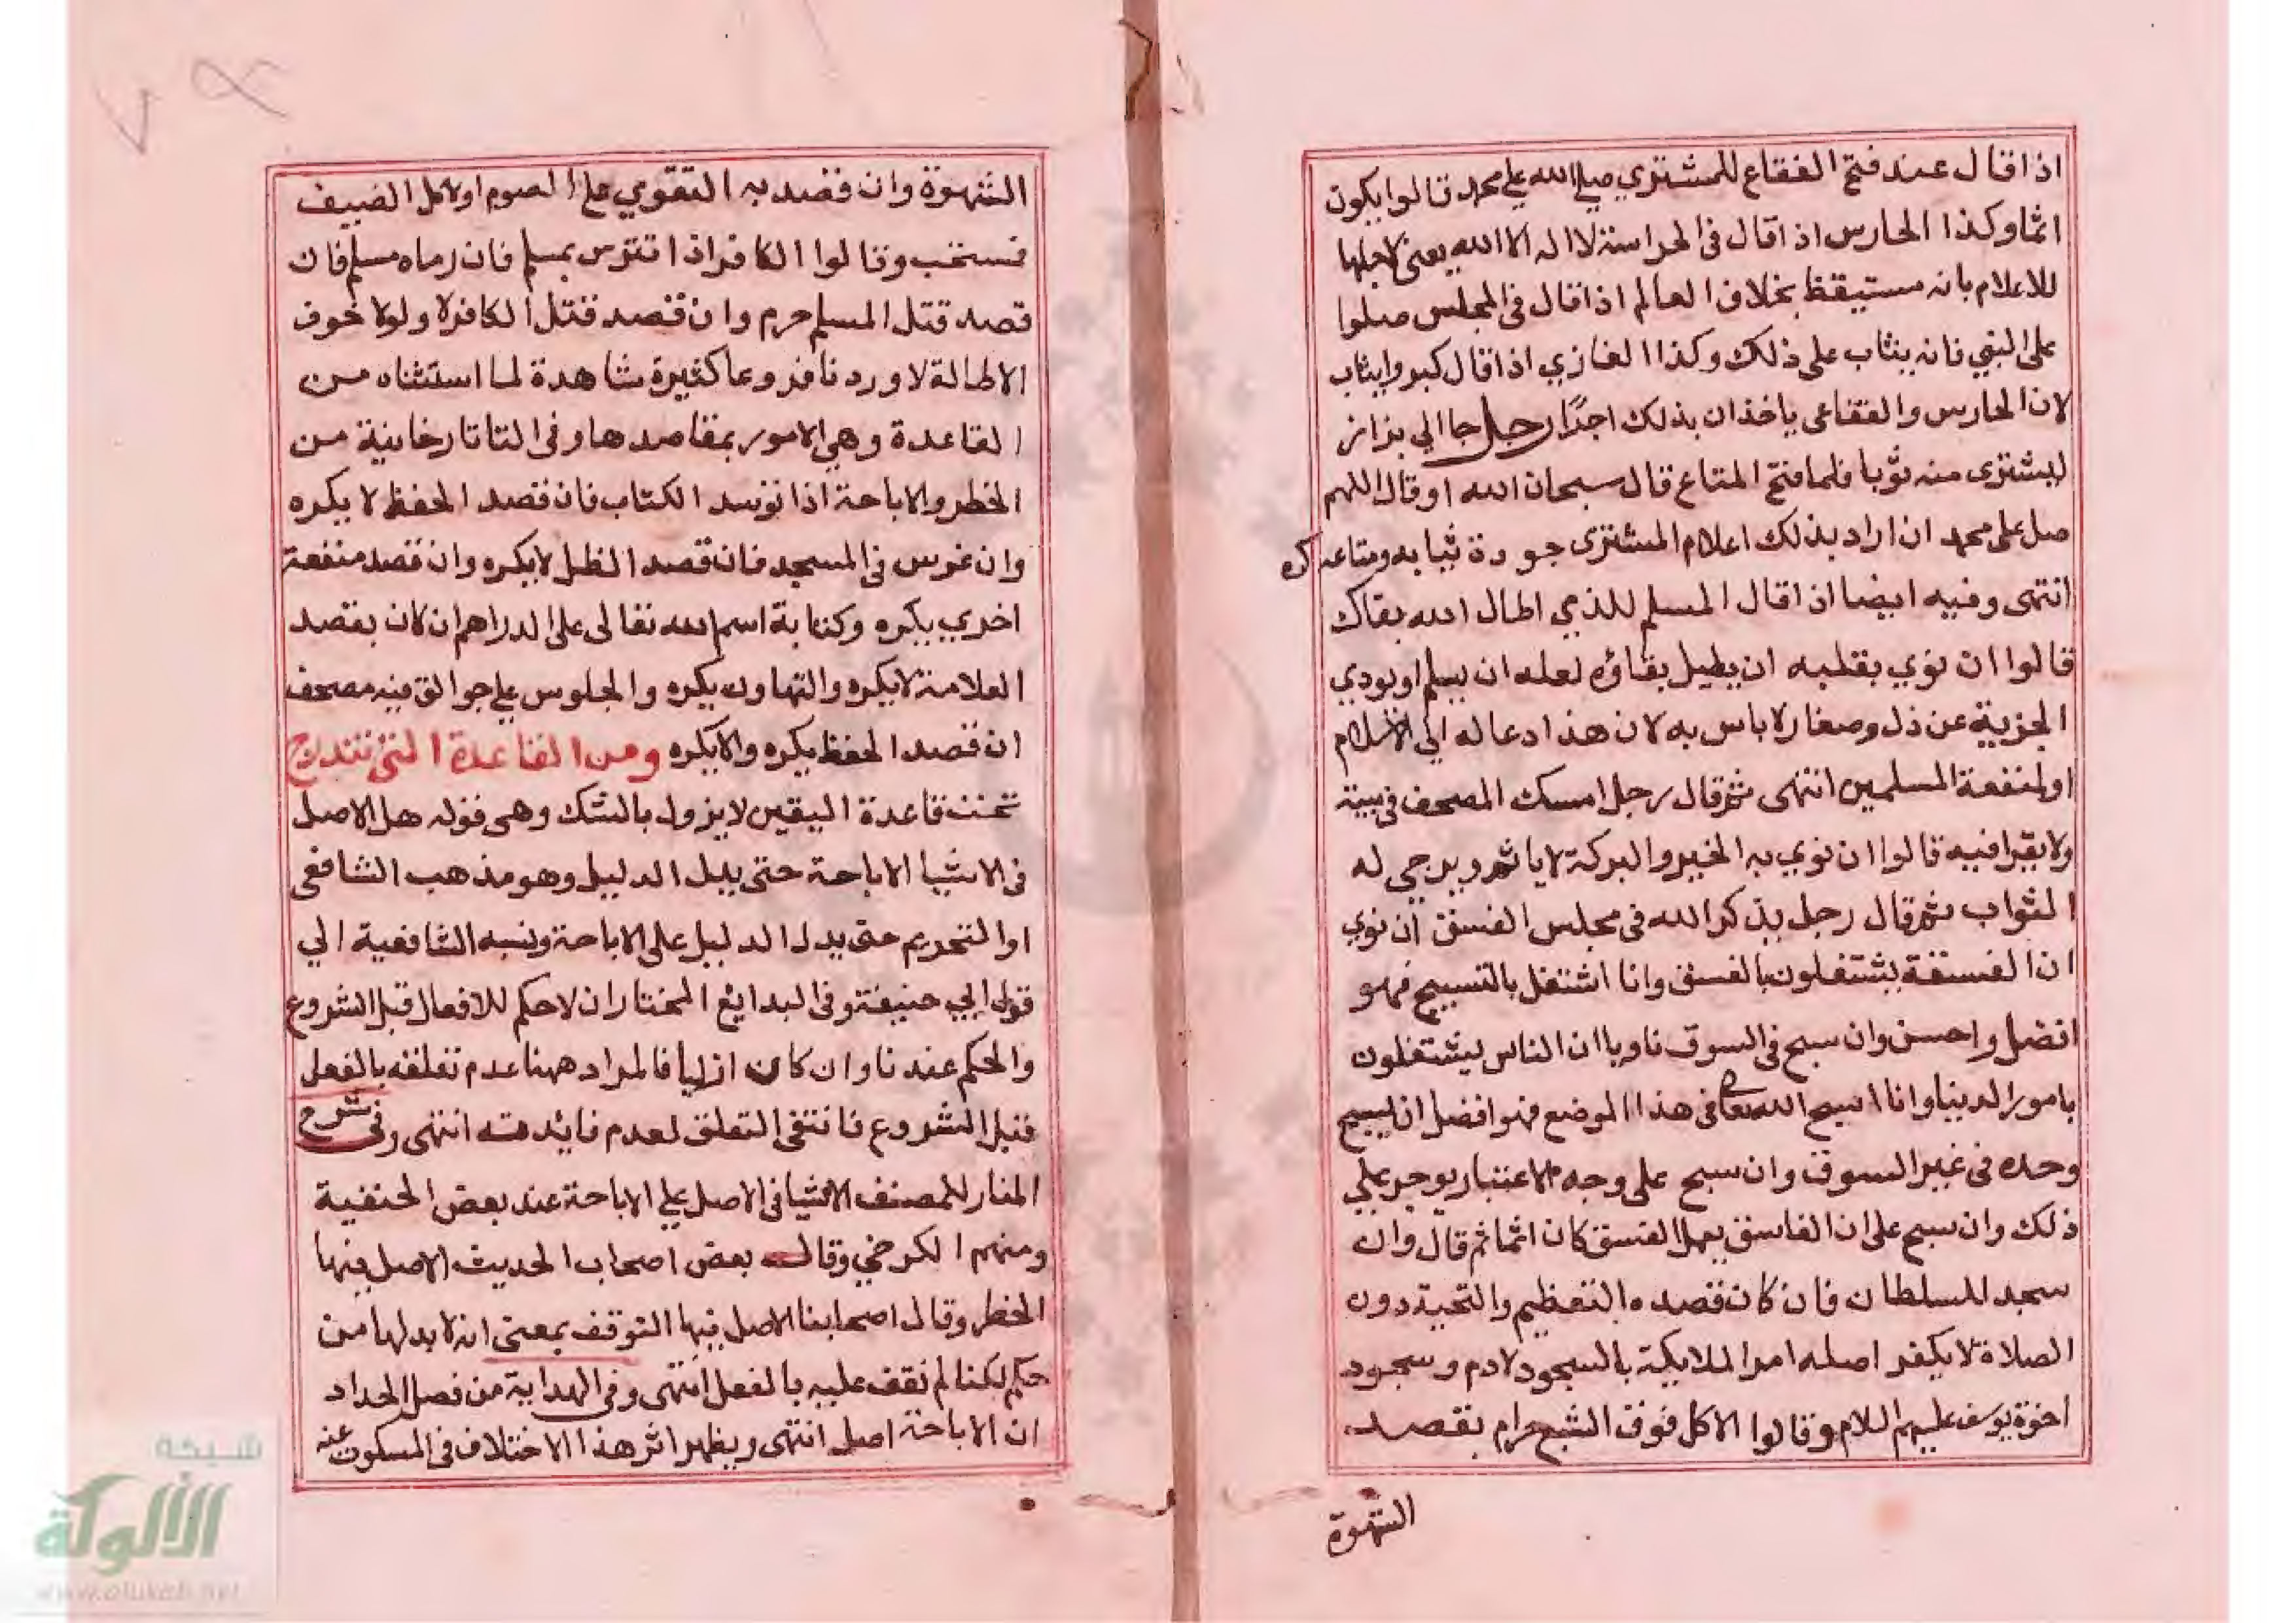 اذا قال عند فتح الفقاع للمشتري صلي الله علي محمد قالوا يكون
اثما وكذا الحارس اذا قال في الحراسة لا اله الا الله يعني لاجلها
للاعلام بانه مستيقظ بخلاف العالم اذا قال في المجلس صلوا
على النبي فانه يثاب على ذلك وكذا الغازي اذا قال كبروا يثاب
لان الحارس والفقاعي ياخذان بذلك اجرًا رجل جا الي بزاز
ليشتري منه ثوبا فلما فتح المتاع قال سبحان الله او قال اللهم
صل على محمد ان اراد بذلك اعلام المشتري جودة ثيابه ومتاعه كره
انتهى وفيه ايضا اذا قال المسلم للذمي اطال الله بقاك
قالوا ان نوي بقلبه ان يطيل بقاؤه لعله ان يسلم او يودي
الجزية عن ذل وصغار لا باس به لان هذا دعا له الي الاسلام
او لمنفعة المسلمين انتهى ثم قال رجل امسك المصحف في بيته
ولا يقرا فيه قالوا ان نوي به الخير والبركة لا ياثم ويرجي له
الثواب ثم قال رجل يذكر الله في مجلس الفسق ان نوي
ان الفسقة يشتغلون بالفسق وانا اشتغل بالتسبيح فهو
افضل واحسن وان سبح في السوق ناويا ان الناس يشتغلون
بامور الدنيا وانا اسبح الله تعالى في هذا الموضع فهو افضل ان يسبح
وحده في غير السوق وان سبح على وجه الاعتبار يوجر علي
ذلك وان سبح على ان الفاسق يعمل الفسق كان اثما ثم قال وان
سجد للسلطان فان كان قصده التعظيم والتحية دون
الصلاة لا يكفر اصله امر الملايكة بالسجود لادم وسجود
اخوة يوسف عليهم السلام وقالوا الاكل فوق الشبع حرام بقصد
الشهوة
الشهوة وان قصد به التقوي على الصوم او لاكل الضيف
فمستحب وقالوا الكافر اذا تترس بمسلم فان رماه مسلم فان
قصد قتل المسلم حرم وان قصد قتل الكافر لا ولولا خوف
الاطالة لاوردنا فروعا كثيرة شاهدة لما استثناه من
القاعدة وهي الامور بمقاصدها وفي التاتارخانية من
الحظر والاباحة اذا توسد الكتاب فان قصد الحفظ لا يكره
وان غرس في المسجد فان قصد الظل لا يكره وان قصد منفعة
اخري يكره وكتابة اسم الله تعالى على الدراهم ان كان بقصد
العلامة لا يكره والتهاون يكره والجلوس علي جوالق فيه مصحف
ان قصد الحفظ يكره والا يكره ومن القاعدة التي تندرج
تحت قاعدة اليقين لا يزول بالشك وهي قوله هل الاصل
في الاشيا الاباحة حتى يدل الدليل وهو مذهب الشافعي
او التحريم حتى يدل الدليل على الاباحة ونسبه الشافعية الي
قول ابي حنيفة وفي البدايع المختار ان لا حكم للافعال قبل الشروع
والحكم عندنا وان كان ازليا فالمراد ههنا عدم تعلقه بالفعل
قبل الشروع فانتفى التعلق لعدم فائدته انتهى وفي شرح
المنار للمصنف الاشيا في الاصل علي الاباحة عند بعض الحنفية
ومنهم الكرخي وقال بعض اصحاب الحديث الاصل فيها
الحظر وقال اصحابنا الاصل فيها التوقف بمعني انه لا بد لها من
حكم لكنا لم نقف عليه بالفعل انتهى وفي الهداية من فصل الحداد
ان الاباحة اصل انتهى ويظهر اثر هذا الاختلاف في المسكوت عنه
شبكة
الألوكة
www.alukah.net